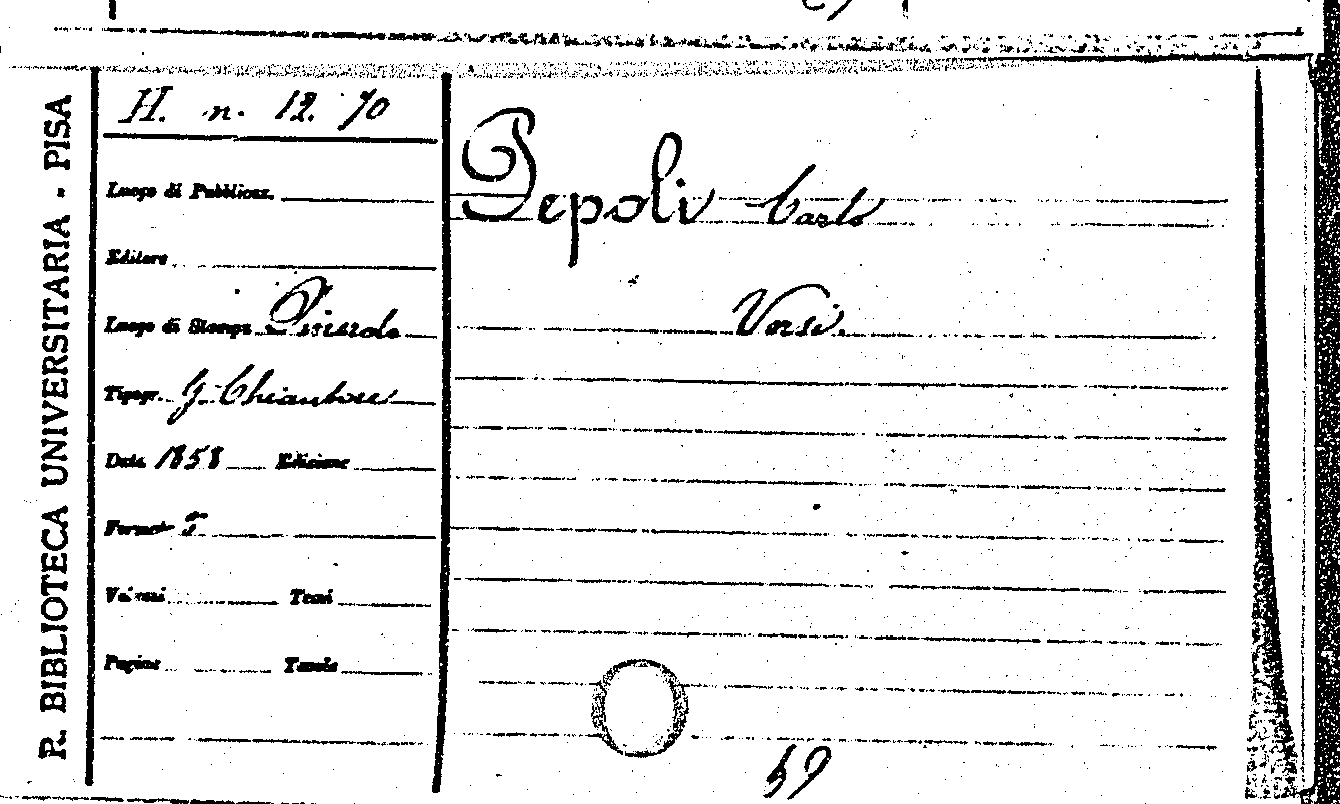 R. BIBLIOTECA UNIVERSITARIA - PISA
H. n. 12. 70
Luogo di Pubblicaz.
Editore
Luogo di Stampa Pinerolo
Tipogr. G. Chiantore
Data 1858 Edizione
Formato
Volumi Tomi
Pagine Tavole
Pepoli Carlo
Versi.
59